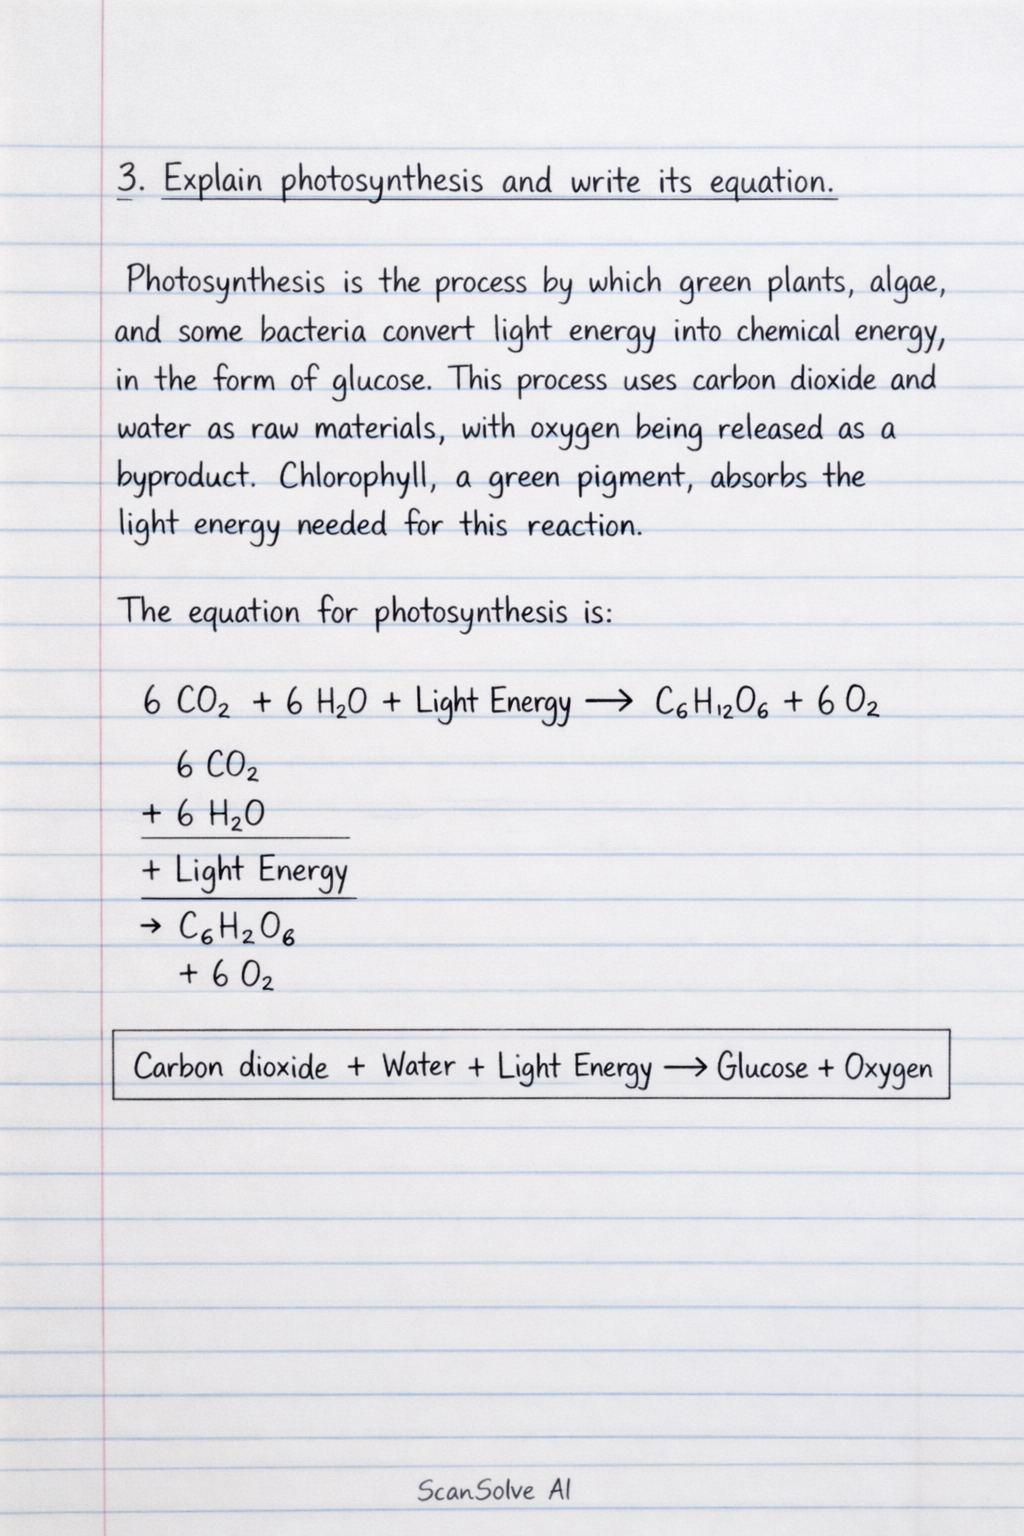 3. Explain photosynthesis and write its equation.
Photosynthesis is the process by which green plants, algae,
and some bacteria convert light energy into chemical energy,
in the form of glucose. This process uses carbon dioxide and
water as raw materials, with oxygen being released as a
byproduct. Chlorophyll, a green pigment, absorbs the
light energy needed for this reaction.
The equation for photosynthesis is:
6 CO₂ + 6 H₂O + Light Energy → C₆H₁₂O₆ + 6 O₂
6 CO₂
+ 6 H₂O
+ Light Energy
→ C₆H₂O₆
+ 6 O₂
Carbon dioxide + Water + Light Energy → Glucose + Oxygen
ScanSolve AI